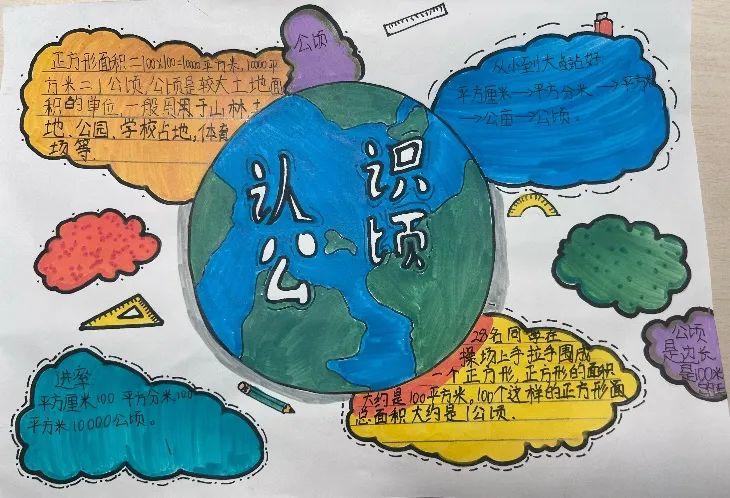 正方形面积=100×100=10000平方米,10000平
方米=1公顷.公顷是较大土地面
积的单位,一般用于山林,土
地、公园、学校占地,体育
场等.
公顷
从小到大点站好
平方厘米→平方分米→平方米
→公亩→公顷。
认识
公顷
进率
平方厘米100 平方分米100
平方米10000公顷。
28名同学在
操场上手拉手围成
一个正方形,正方形的面积
大约是100平方米。100个这样的正方形面
总面积大约是1公顷.
公顷
是边长
是100米